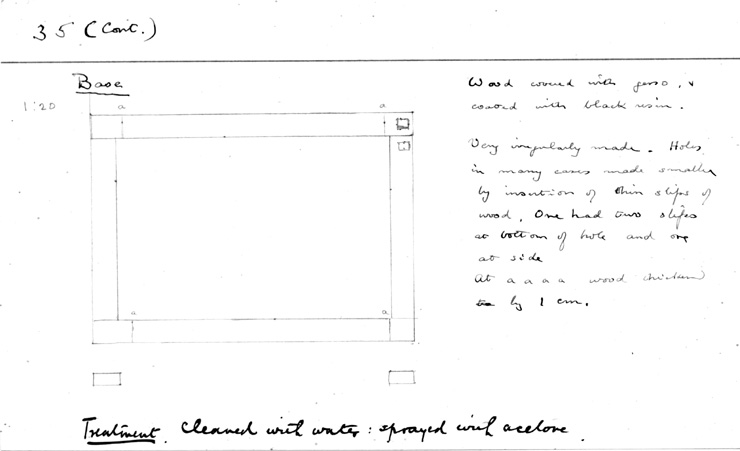 35 (Cont.)
Base
1:20
a a
a a
Wood covered with gesso, &
covered with black resin.
Very irregularly made. Holes
in many cases made smaller
by insertion of thin slips of
wood. One had two slips
at bottom of hole and one
at side
At a a a a wood thickened
by 1 cm.
Treatment. Cleaned with water: sprayed with acetone.